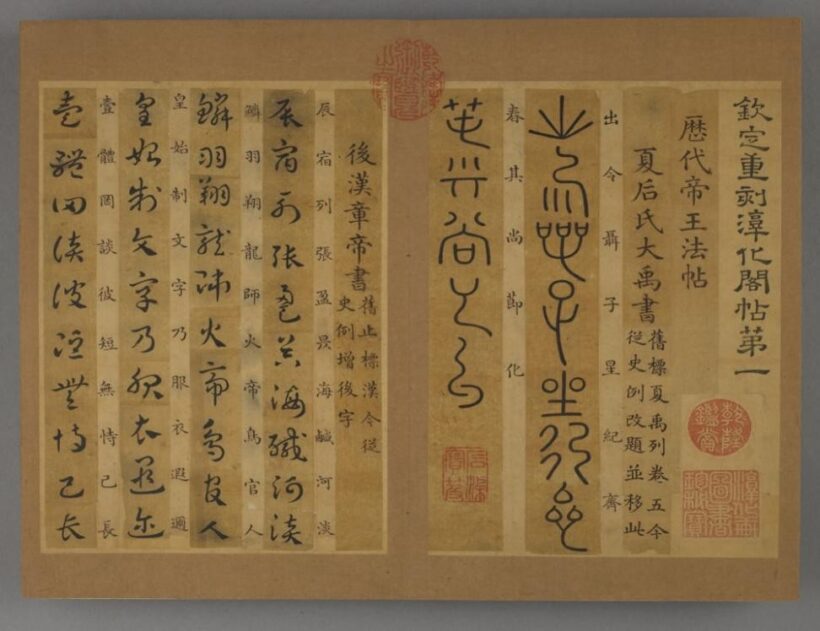 欽定重刻淳化閣帖第一
乾隆鑑賞
淳化軒圖書珍秘寶
歷代帝王法帖
夏后氏大禹書
舊標夏禹列卷五今
從史例改題並移此
出令聶子星紀齊
出令聶子星紀齊
春其尚節化
春其尚節化
後漢章帝書
舊止標漢今從
史例增後字
辰宿列張盈昃海鹹河淡
辰宿列張盈昃海鹹河淡
鱗羽翔龍師火帝鳥官人
鱗羽翔龍師火帝鳥官人
皇始制文字乃服衣遐邇
皇始制文字乃服衣遐邇
壹體罔談彼短無恃己長
壹體罔談彼短無恃己長